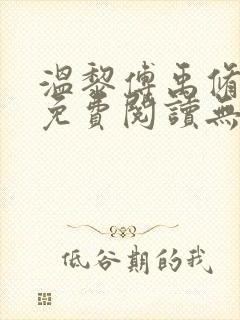 溫黎傅禹脩
免費閱讀無
低谷期的我